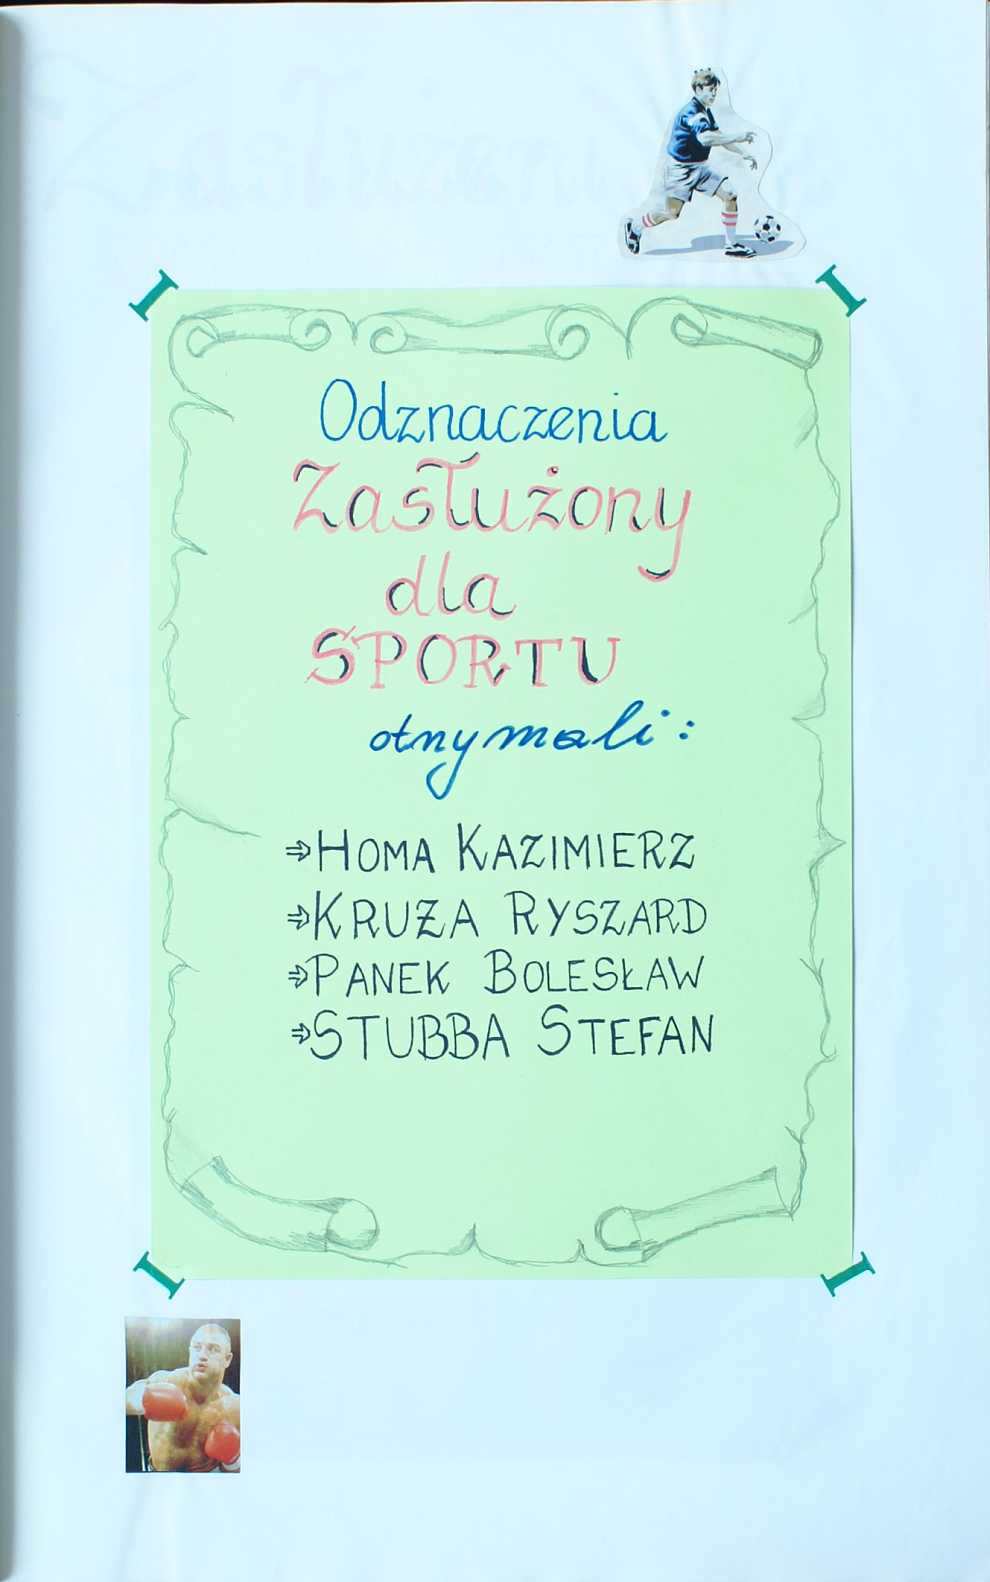 Odznaczenia
Zasłużony
dla
SPORTU
otrzymali:
⇒HOMA KAZIMIERZ
⇒KRUŻA RYSZARD
⇒PANEK BOLESŁAW
⇒STUBBA STEFAN